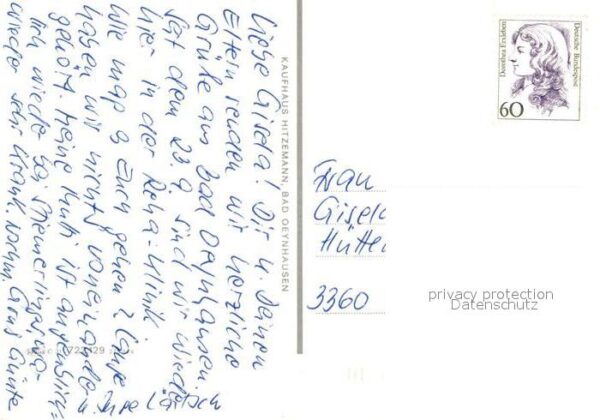 Liebe Gisela! Dir u. Deinen
Eltern senden wir herzliche
Grüße aus Bad Oeynhausen.
Seit dem 23.9. sind wir wieder
hier in der Reha-Klinik
Wie mag es Euch gehen? Lange
haben wir nichts voneinander
gehört. Meine Mutti ist augenblick=
lich wieder bei
wieder sehr krank. Nochm. Gruß Günter
KAUFHAUS HITZEMANN, BAD OEYNHAUSEN
Dorothea Erxleben
Deutsche Bundespost
60
Frau
Gisela
Hütte
3360
privacy protection
Datenschutz